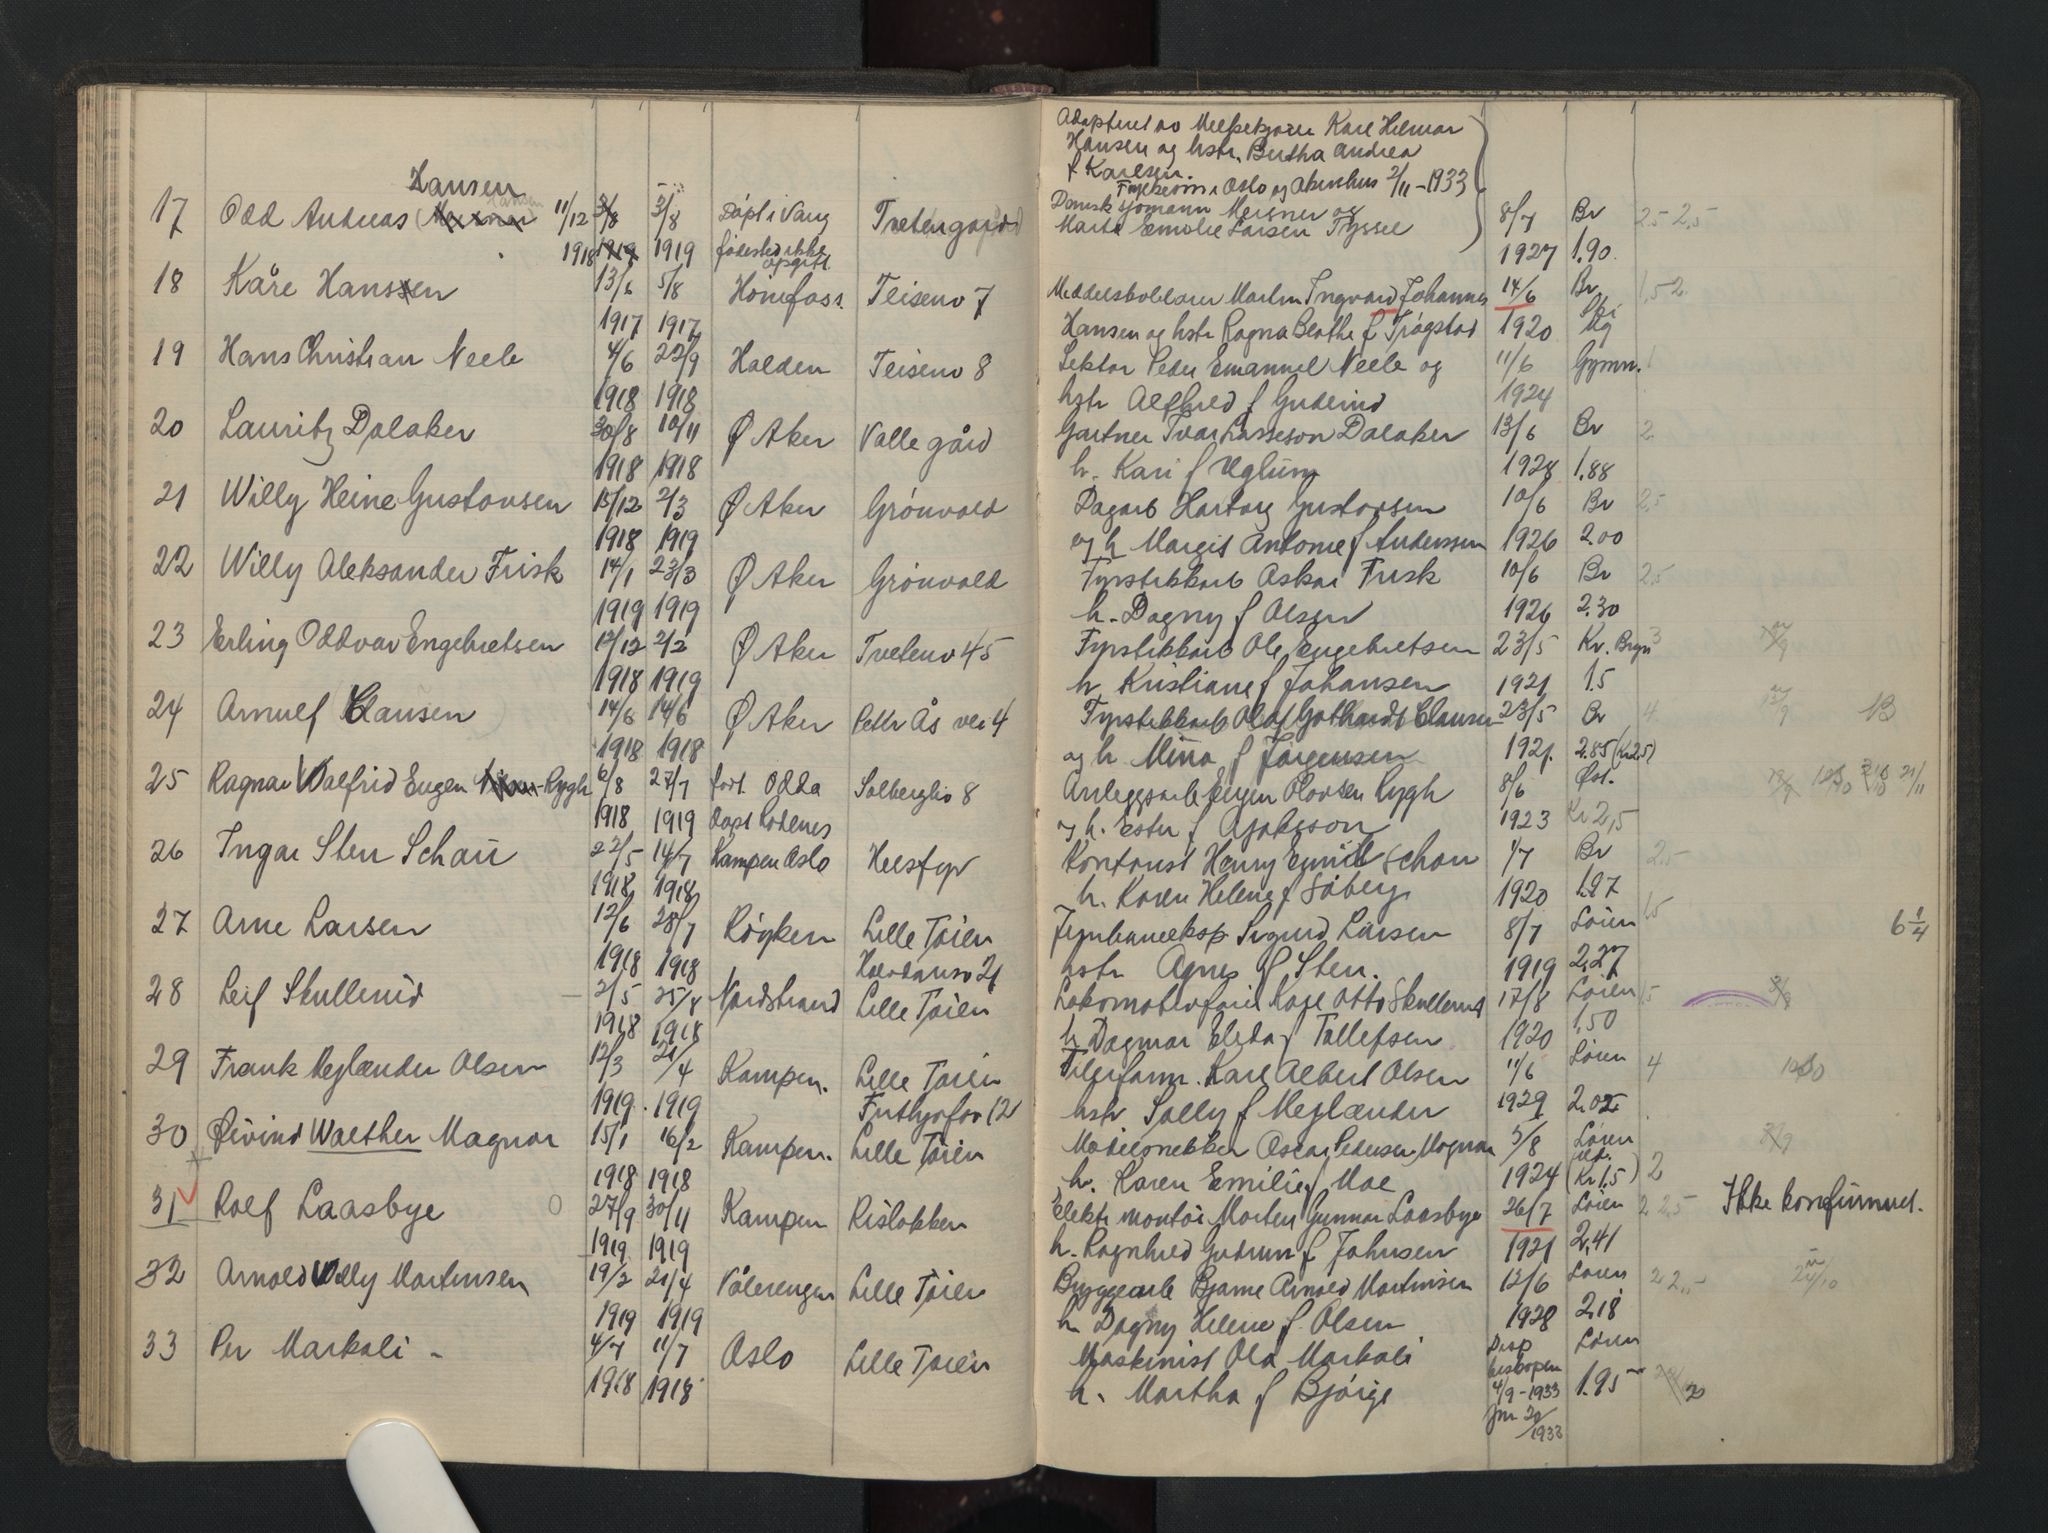 Adopteret av Melkekjører Karl Hilmar
Hansen og hstr. Bertha Andrea
f Karlsen.
Fylkesm i Oslo og Akershus 2/11-1933
Hansen
17 Odd Andreas 11/12 3/8 3/8 Døpt i Vang Tvetengaard Dansk sjømann Meisner og 8/7 Br 2.5 2,5
1918 1919 1919 fødested ikke opgitt Marta Emilie Larsen Tyssel 1927 1.90
18 Kåre Hansen 13/6 5/8 Hønefoss Teisenv 7 Martin Ingvard Johannes 14/6 Br 1,5 2
1917 1917 Hansen og hstr Ragna Beathe f Trøgstad 1920 Ski
19 Hans Christian Neele 4/6 22/9 Halden Teisenv 8 Lektor Peder Emanuel Neele og 11/6 Gymn. 1
1918 1918 hstr Alfhild f Guderud 1924
20 Lauritz Dalaker 30/8 10/11 Ø Aker Valle gård Gartner Ivar Lasseson Dalaker 13/6 Br 2.
1918 1918 h. Kari f Uglum 1928 1.88
21 Willy Heine Gustavsen 15/12 2/3 Ø Aker Grønvold Dagarb Hartvig Gustavsen 10/6 Br 2,5
1918 1919 og h Margit Antonie f Anderssen 1926 2.00
22 Willy Aleksander Frisk 14/1 23/3 Ø Aker Grønvold Fyrstikkarb Oskar Frisk 10/6 Br 2,5
1919 1919 h. Dagny f Olsen 1926 2.30
23 Erling Oddvar Engebretsen 12/12 2/2 Ø Aker Tvetenv 45 Fyrstikkarb Ole Engebretsen 23/5 Kr. Bryn 3
1918 1919 h Kristiane f Johansen 1921 1.5
24 Arnulf Clausen 14/6 14/6 Ø Aker Petter Ås vei 4 Fyrstikkarb Olaf Gothardt Clausen 23/5 Br 4 13
1918 1918 og h. Mina f Jørgensen 1921. 2.85 (Kr 2.5)
25 Ragnar Walfrid Eugen Rygh 6/8 27/7 født Odda Solberglia 8 Anleggsarb Eugen Olavsen Rygh 8/6 Øst. 21/11
1918 1919 døpt Rødenes og h. Ester f 1923 Kr 2,5
26 Ingar Sten Schau 22/5 14/7 Kampen Oslo Helsfyr Kontorist Henry Emil Schau 1/7 Br 2.5
1918 1918 h. Karen Helene f Søberg 1920 1.97
27 Arne Larsen 12/6 28/7 Røyken Lille Tøien Jernbaneeksp Sigurd Larsen 8/7 Løren 1.5 6 1/4
1918 1918 Haldansv 21 hstr Agnes f Sten. 1919 2,27
28 Leif Skullerud 2/5 25/8 Nordstrand Lille Tøien Lokomotivfører Kåre Otto Skullerud 17/8 Løren 1.5
1918 1918 h Dagmar Elida f Tollefsen 1920 1,50
29 Frank Meylænder Olsen 12/3 21/4 Kampen. Lille Tøien Filerform. Karl Albert Olsen 11/6 Løren 4
1919. 1919 Frithjofsv 12 hstr Solly f Meylænder 1929 2.02
30 Øivind Walther Magnor 15/1 16/2 Kampen. Lille Tøien Modellsnekker Oscar Pedersen Magnor 5/8 Løren
1918 1918 h. Karen Emilie f Moe 1924 (Kr 1,5) 2
31 Rolf Laasbye 0 27/9 30/11 Kampen Risløkken Elektr montør Morten Gunnar Laasbye 26/7 Løren 2 2.5 Ikke konfirmert.
1919 1919 h. Ragnhild Gudrun f Johnsen 1921 2,41
32 Arnold Willy Martinsen 19/2 21/4 Vålerengen Lille Tøien Byggearb Bjarne Arnold Martinsen 12/6 Løren 2 2,-
1919 1919 h Dagny Helene f. Olsen 1928 2,18
33 Per Markali - 4/7 11/7 Oslo Lille Tøien Maskinist Ola Markali Disp Løren
1918 1918 h. Martha f Bjørge biskopen 1.95
4/9-1933
Jnr 20/1933